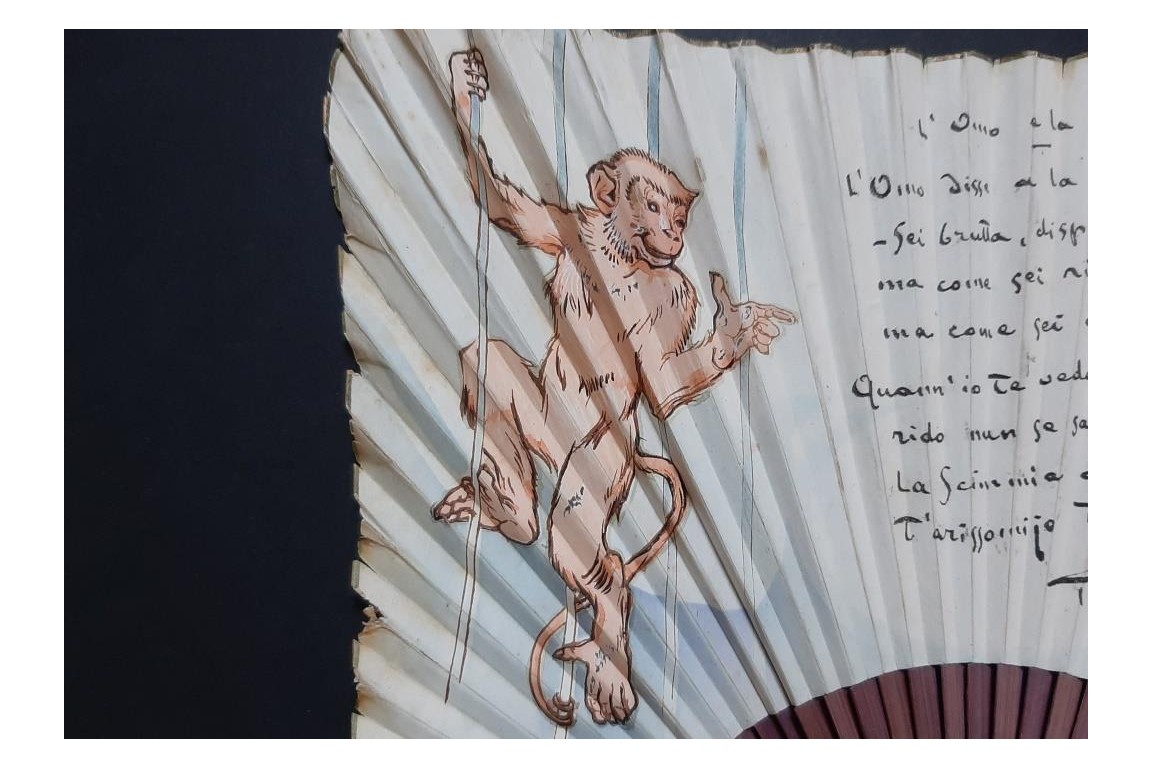 L' Omo e la
L'Omo disse a la
- Sei brutta, disp
ma come sei ri
ma come sei
Quann' io te vede
rido nun se sa
La Scimmia
T'arissomijo T